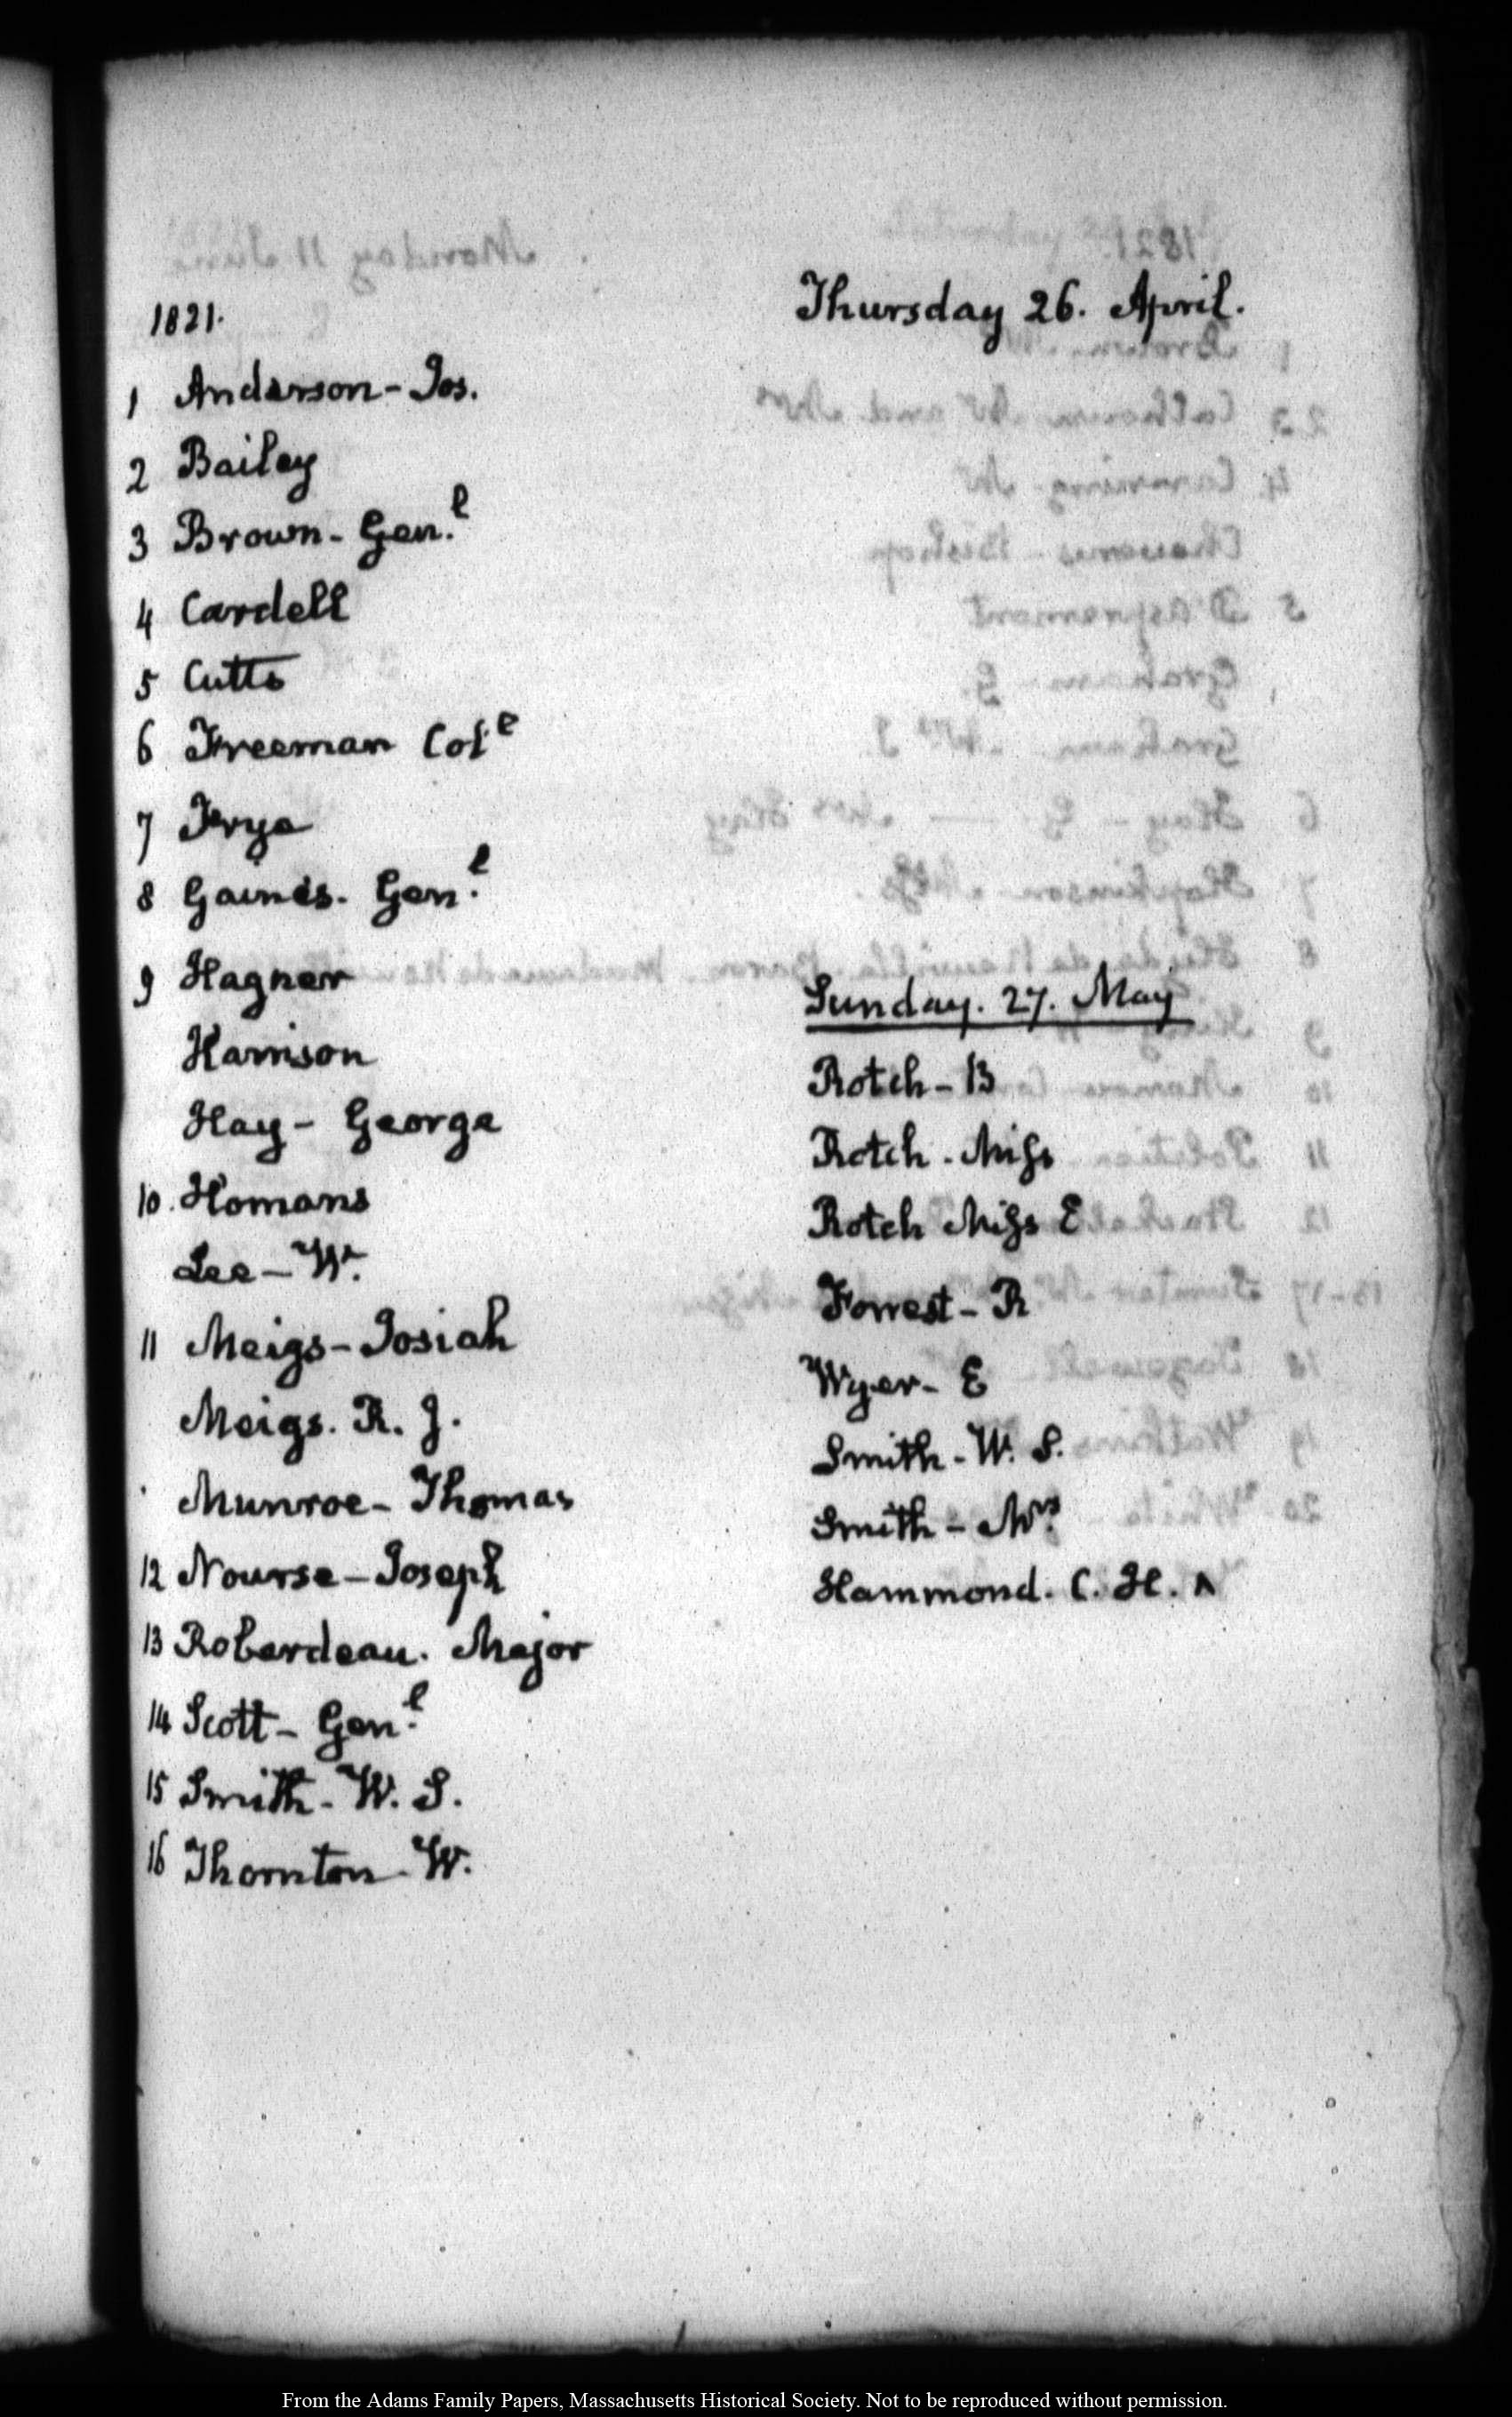 1821.
Thursday 26. April.
1 Anderson - Jos.
2 Bailey
3 Brown - Gen.l
4 Cardell
5 Cutts
6 Freeman Col.e
7 Frye
8 Gaines. Gen.l
9 Hagner
Harrison
Hay - George
10. Homans
Lee - W.
11 Meigs - Josiah
Meigs. R. J.
Munroe - Thomas
12 Nourse - Joseph
13 Roberdeau. Major
14 Scott - Gen.l
15 Smith - W. S.
16 Thornton - W.
Sunday. 27. May
Rotch - B
Rotch - Miss
Rotch Miss E
Forrest - R
Wyer - E
Smith - W. S.
Smith - Mrs
Hammond. C. H. A
From the Adams Family Papers, Massachusetts Historical Society. Not to be reproduced without permission.